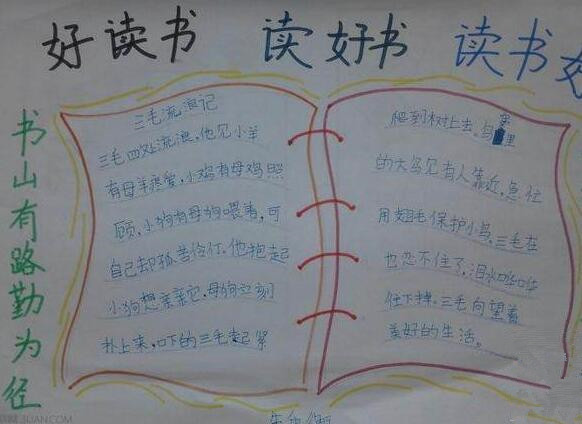 好读书 读好书 读书好
书山有路勤为径
三毛流浪记
三毛四处流浪,他见小羊
有母羊疼爱,小鸡有母鸡照
顾,小狗有母狗喂毒,可
自己却孤苦伶仃,他抱起
小狗想亲亲它,母狗立刻
扑上来,吓的三毛赶紧
爬到树上去。鸟窝里
的大鸟见有人靠近,急忙
用翅毛保护小鸟,三毛在
也忍不住了,泪水哗哗
往下掉。三毛向望着
美好的生活。